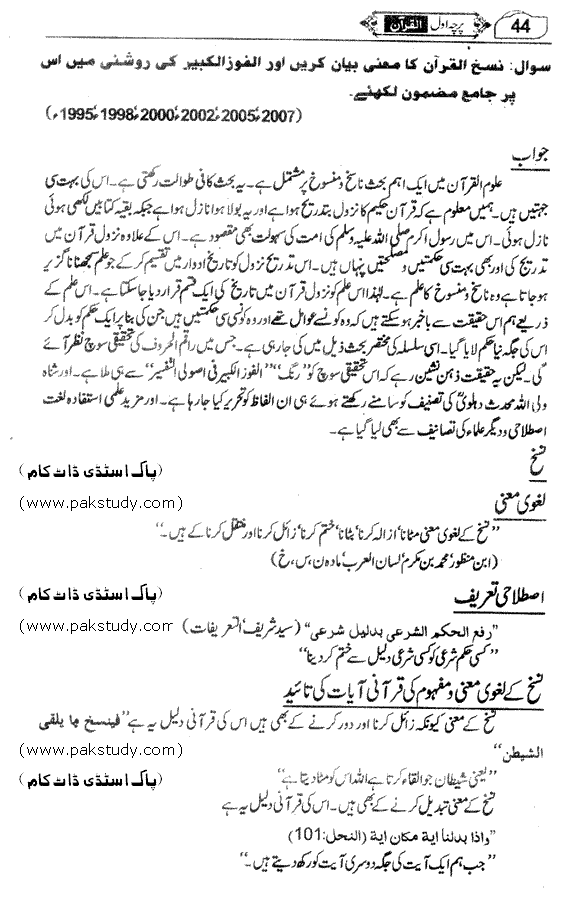 44 پرچہ اول القرآن
سوال: نسخ القرآن کا معنی بیان کریں اور الفوزالکبیر کی روشنی میں اس
پر جامع مضمون لکھئے۔
(1995ء،1998ء،2000ء،2002ء،2005ء،2007ء)
جواب
علوم القرآن میں ایک اہم بحث ناسخ و منسوخ پر مشتمل ہے۔ یہ بحث کافی طوالت رکھتی ہے۔ اس کی بہت سی
جہتیں ہیں۔ ہمیں معلوم ہے کہ قرآن حکیم کا نزول بتدریج ہوا ہے اور یہ بولا ہوا نازل ہوا ہے جبکہ بقیہ کتابیں لکھی ہوئی
نازل ہوئی۔ اس میں رسول اکرم صلی اللہ علیہ وسلم کی امت کی سہولت بھی مقصود ہے۔ اس کے علاوہ نزول قرآن میں
تدریج کی اور بھی بہت سی حکمتیں و مصلحتیں پنہاں ہیں۔ اس تدریج نزول کو تاریخ ادوار میں تقسیم کر کے جو علم سمجھنا ناگزیر
ہو جاتا ہے وہ ناسخ و منسوخ کا علم ہے۔ لہٰذا اس علم کو نزول قرآن میں تاریخ کی ایک قسم قرار دیا جا سکتا ہے۔ اس علم کے
ذریعے ہم اس حقیقت سے باخبر ہو سکتے ہیں کہ وہ کونسے عوامل تھے اور وہ کونسی حکمتیں ہیں جن کی بنا پر ایک حکم کو بدل کر
اس کی جگہ نیا حکم لایا گیا۔ اسی سلسلہ کی مختصر بحث ذیل میں کی جا رہی ہے۔ جس میں راقم الحروف کی تحقیقی سوچ نظر آئے
گی۔ لیکن یہ حقیقت ذہن نشین رہے کہ اس تحقیقی سوچ کو ”رنگ“ ”الفوز الکبیر فی اصولی التفسیر“ سے ہی ملا ہے۔ اور شاہ
ولی اللہ محدث دہلویؒ کی تصنیف کو سامنے رکھتے ہوئے ہی ان الفاظ کو تحریر کیا جا رہا ہے۔ اور مزید علمی استفادہ لغت
اصطلاحی و دیگر علماء کی تصانیف سے بھی لیا گیا ہے۔
نسخ
(پاک اسٹڈی ڈاٹ کام)
لغوی معنی (www.pakstudy.com)
”نسخ کے لغوی معنی مٹانا، ازالہ کرنا، ہٹانا، ختم کرنا، زائل کرنا اور منتقل کرنا کے ہیں۔“
(ابن منظور، محمد بن مکرم، لسان العرب، مادہ ن، س، خ)
اصطلاحی تعریف (پاک اسٹڈی ڈاٹ کام)
”رفع الحکم الشرعی بدلیل شرعی“ (سید شریف، التعریفات) (www.pakstudy.com
”کسی حکم شرعی کو کسی شرعی دلیل سے ختم کر دینا“
نسخ کے لغوی معنی و مفہوم کی قرآنی آیات کی تائید
نسخ کے معنی کیونکہ زائل کرنا اور دور کرنے کے بھی ہیں اس کی قرآنی دلیل یہ ہے ”فینسخ ما یلقی
الشیطن“ (www.pakstudy.com)
”یعنی شیطان جو القاء کرتا ہے اللہ اس کو مٹا دیتا ہے“ (پاک اسٹڈی ڈاٹ کام)
نسخ کے معنی تبدیل کرنے کے بھی ہیں۔ اس کی قرآنی دلیل یہ ہے
”واذا بدلنا ایة مکان ایة (النحل:101)
”جب ہم ایک آیت کی جگہ دوسری آیت کو رکھ دیتے ہیں۔“